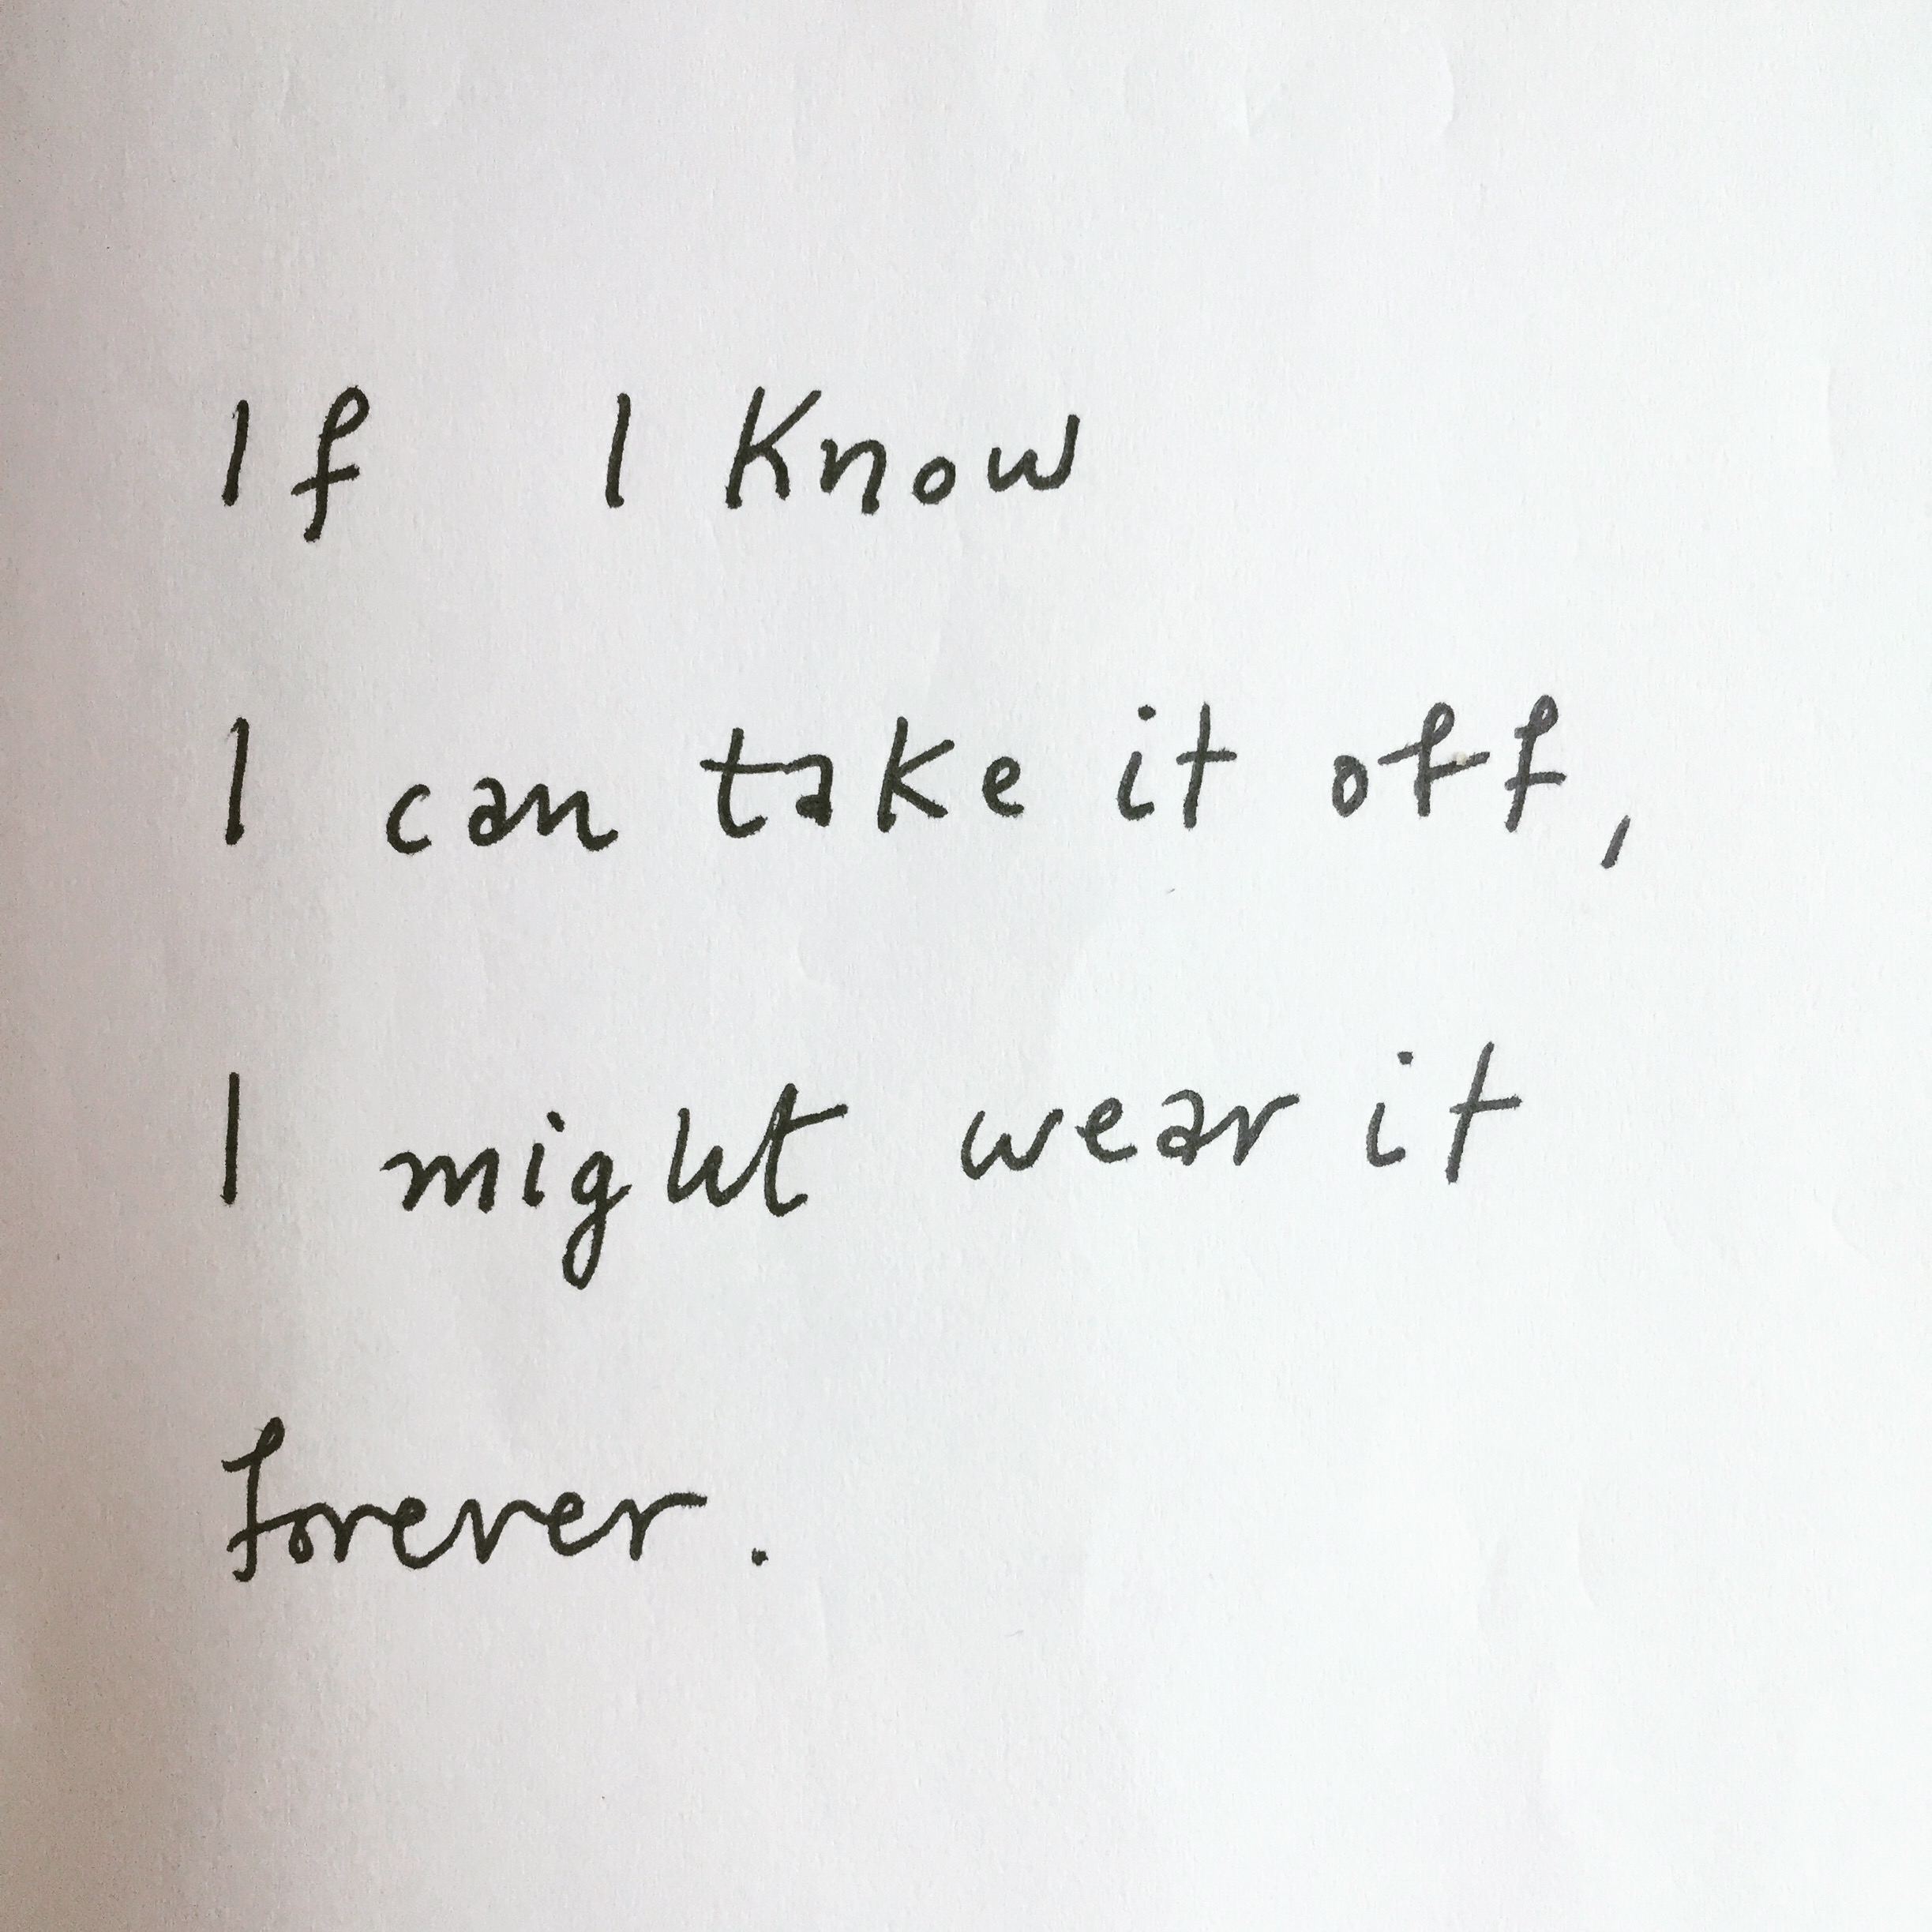 If I Know
I can take it off,
I might wear it
forever.